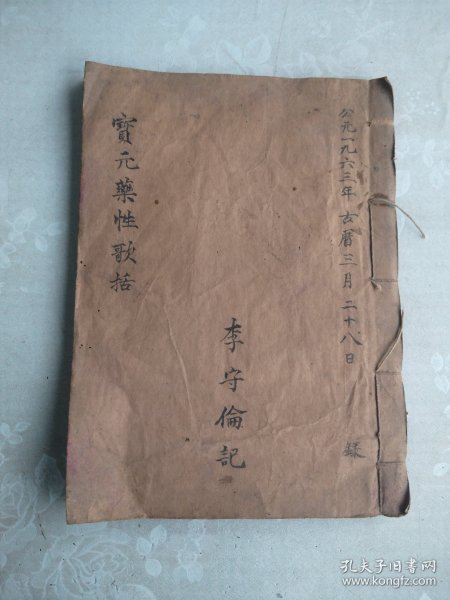 公元一九六三年古曆三月二十八日 錄
李守倫記
寶元藥性歌括
孔夫子旧书网
www.kongfz.com